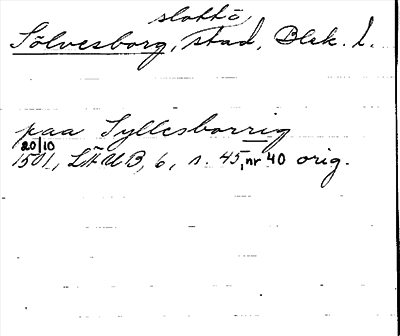 slott o,
Sölvesborg, stad, Blek. l.
paa Syllesborrig
20/10
1501, LÄUB, 6, s. 45, nr 40 orig.